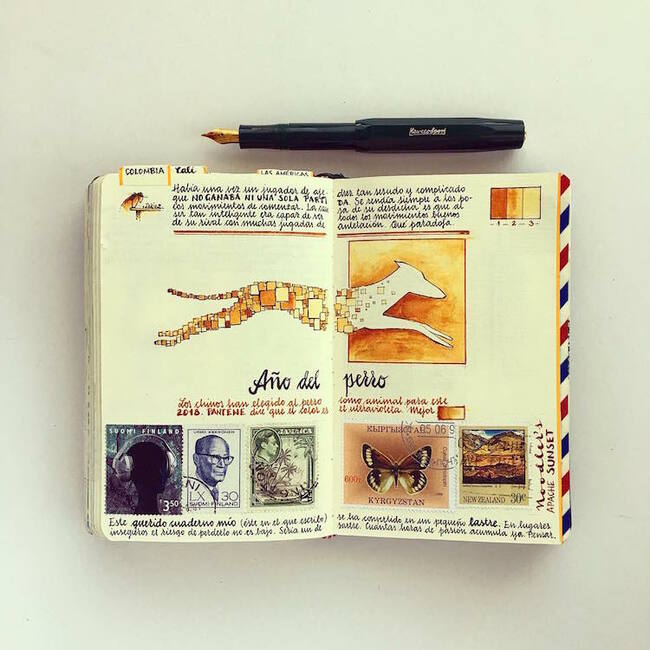 Kaweco Sport
COLOMBIA Cali LAS AMÉRICAS
Había una vez un jugador de aje drez tan sesudo y complicado
que NO GANABA NI UNA SOLA PARTI DA. Se rendía siempre a los po
cos movimientos de comenzar. La cau sa de su desdicha es que al
ser tan inteligente era capaz de ver todos los movimientos buenos
de su rival con muchas jugadas de antelación. Que paradoja
- 1 - 2 - 3 -
Año del perro
Los chinos han elegido al perro como animal para este
2018. PANTENE dice que el color es el ultravioleta. Mejor
SUOMI FINLAND
3,50
LX 30
SUOMI FINLAND
JAMAICA
КЫРГЫЗСТАН
05 06 9
600т
KYRGYZSTAN
NEW ZEALAND 30c
Noodler's
APACHE SUNSET
Este querido cuaderno mío (éste en el que escribo) se ha convertido en un pequeño lastre. En lugares
inseguros el riesgo de perderlo no es bajo. Sería un de sastre. Cuántas horas de pasión acumula ya. Pensar.